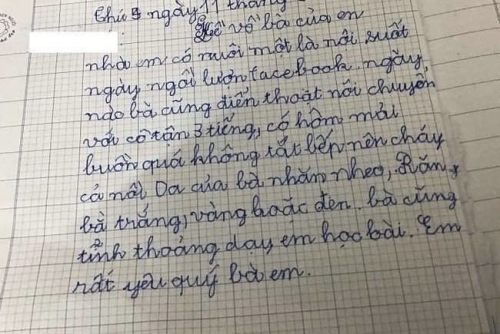 Thứ 5 ngày 11 tháng
Kể về bà của em
nhà em có nuôi một bà nội suốt
ngày ngồi lướn facebook. ngày
nào bà cũng điển thoạt nói chuyển
với cô tân 3 tiếng, có hôm mải
buôn quá không tắt bếp nên cháy
cả nồi. Da của bà nhăn nheo, Răn
bà trắng, vàng hoặc đen. bà cũng
tỉnh thoảng dạy em học bài. Em
rất yêu quý bà em.